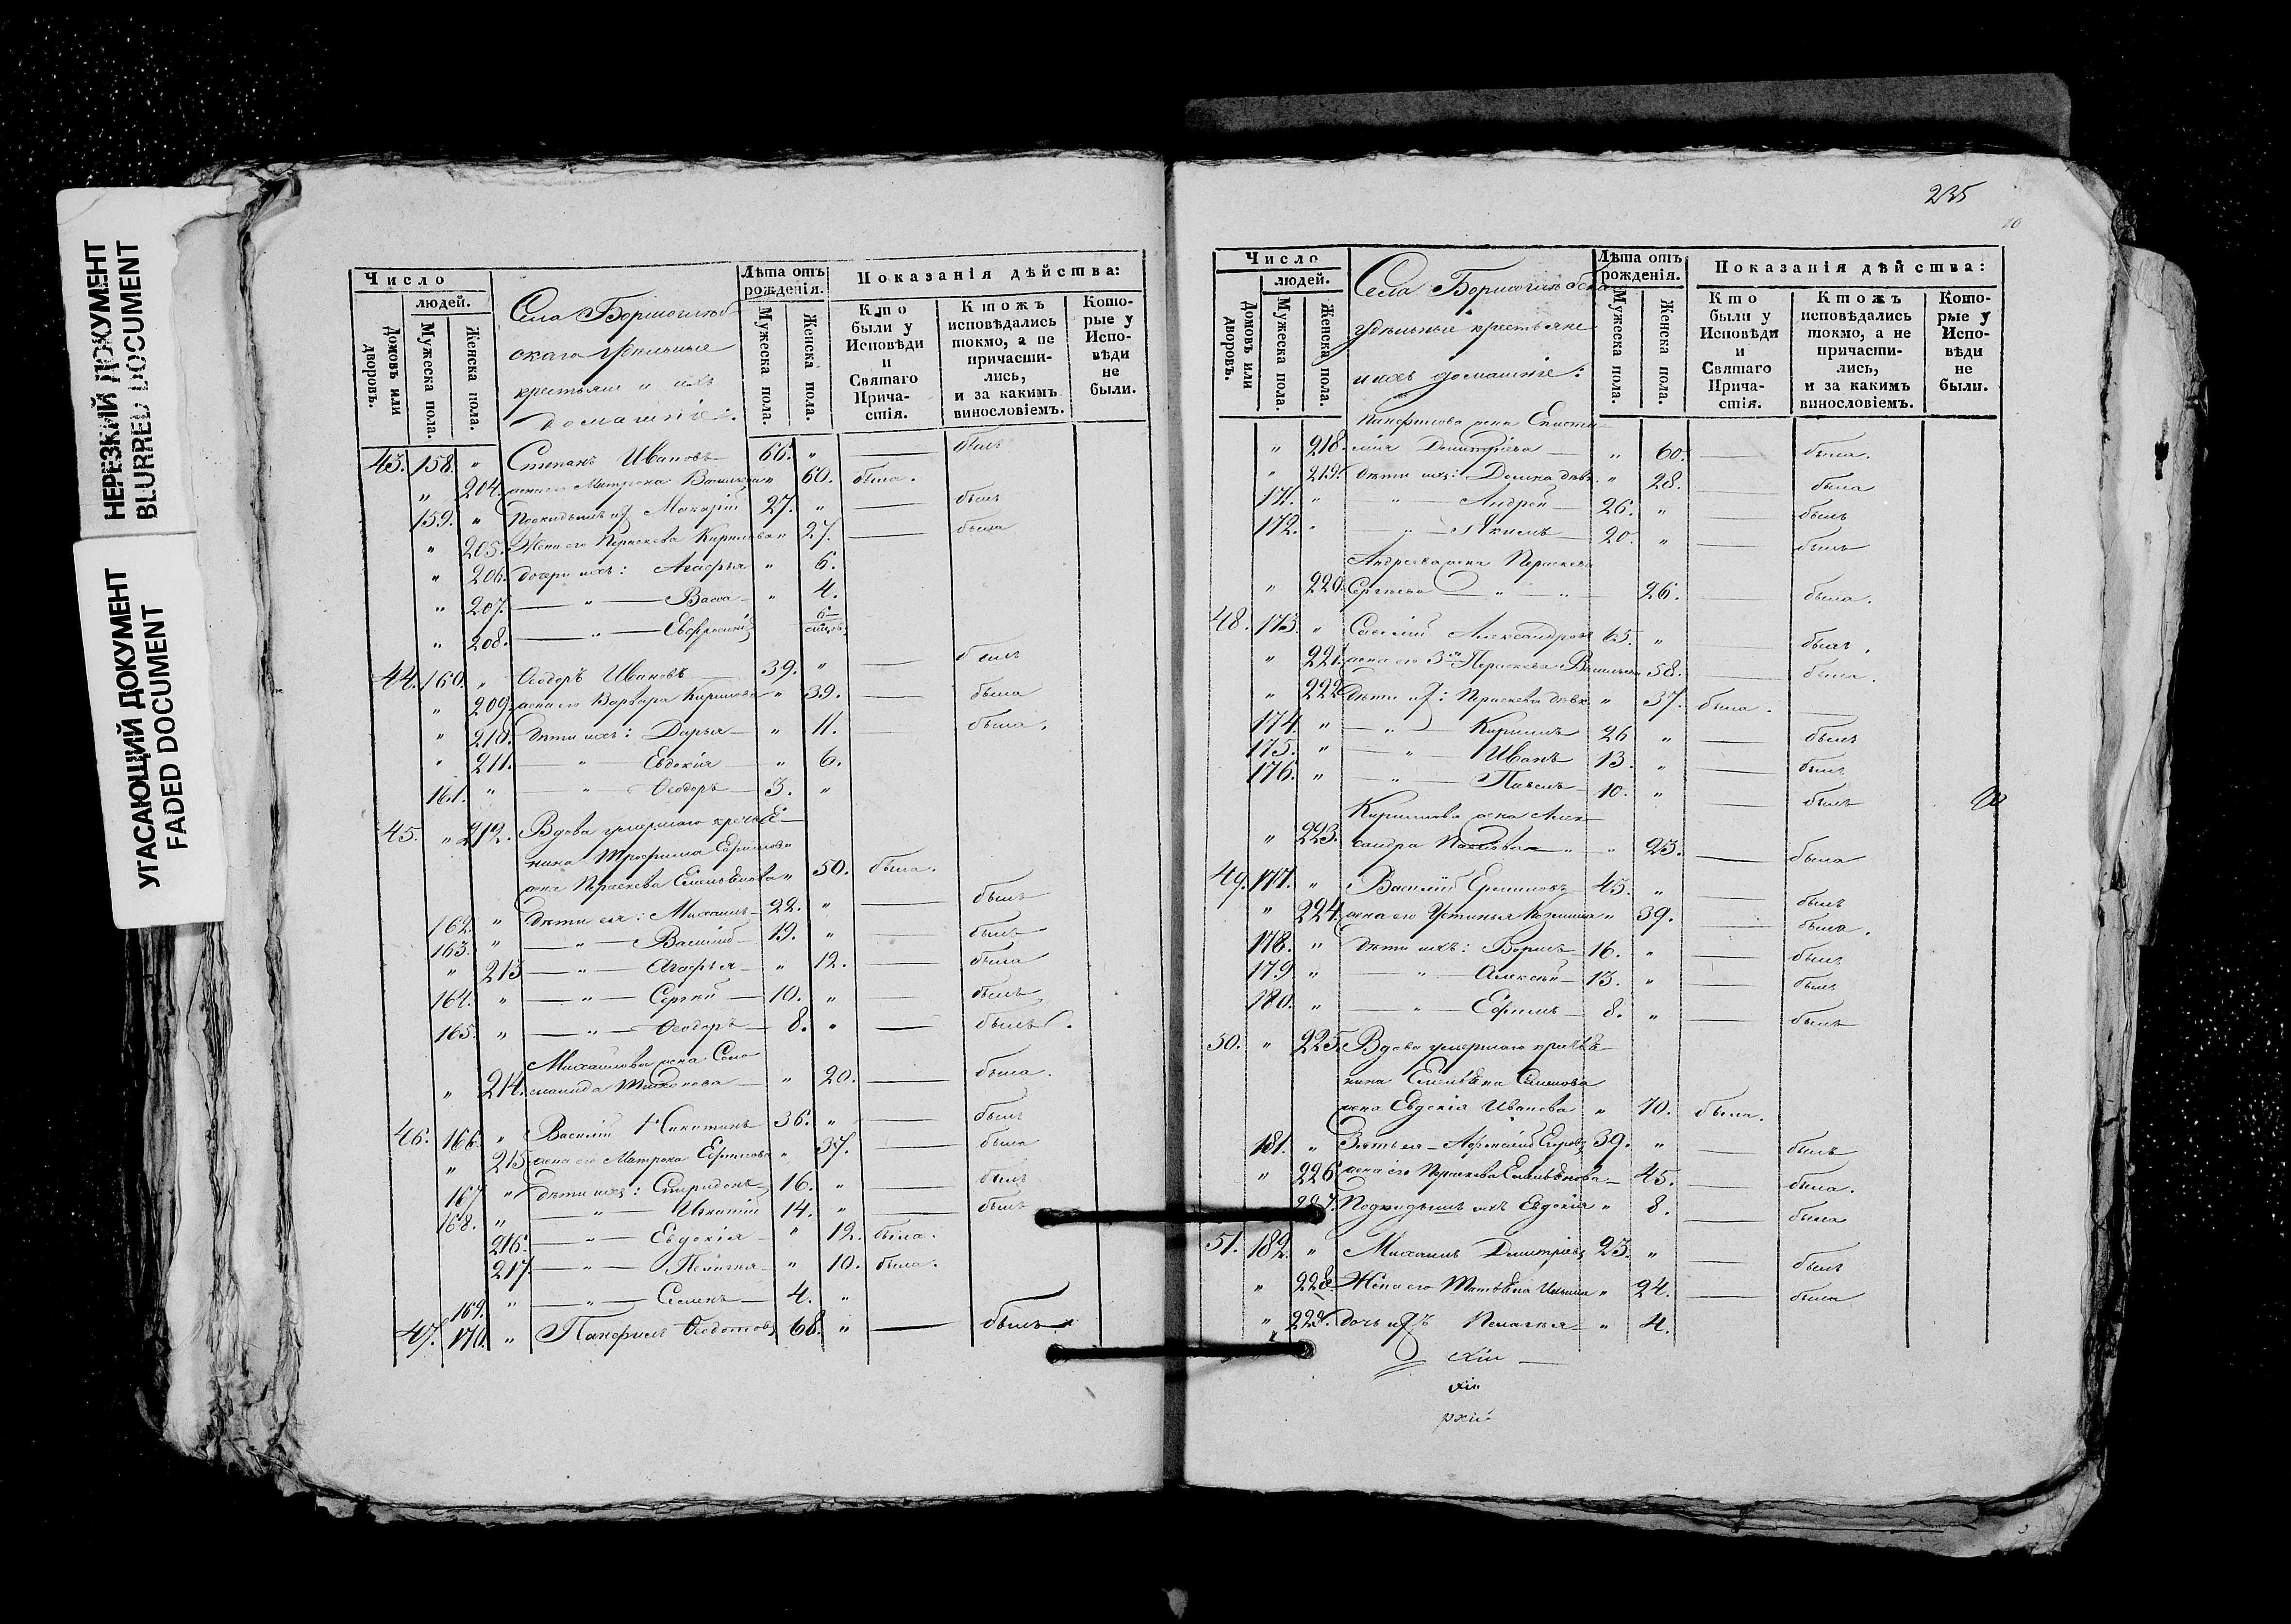 НЕРЕЗКИЙ ДОКУМЕНТ
BLURRED DOCUMENT
УГАСАЮЩИЙ ДОКУМЕНТ
FADED DOCUMENT
Число
людей.
Домовъ или дворовъ.
Мужеска пола.
Женска пола.
Села Борисоглеб-
скаго удѣльные
крестьяне и ихъ
домашніе:
Лѣта отъ рожденія.
Мужеска пола.
Женска пола.
Показанія дѣйства:
Кто были у Исповѣди и Святаго Причастія.
Ктожъ исповѣдались токмо, а не причастились, и за какимъ винословіемъ.
Которые у Исповѣди не были.
43. 158. " Степанъ Ивановъ 66. " — былъ
" 204. жена его Матрона Васильева " 60. была.
159. " Макарій 27. " — былъ
" 205. Жена его Параскева Кирилова " 27. — была
" 206. дочери ихъ: Агафья " 6.
" 207. — " — Васса " 4.
" 208. — " — Евфросинія 6
44. 160. " Ѳеодоръ Ивановъ 39. " — былъ
" 209. жена его Варвара Кирилова " 39. — была
" 210. дѣти ихъ: Дарья " 11. — была.
" 211. — " — Евдокія " 6.
161. " — " — Ѳеодоръ — 3. "
45. " 212. Вдова умершаго крестья-
нина Трофима Ефимова
жена Параскева Емельянова " 50. была.
162. " дѣти ея: Михаилъ 22. " — былъ
163. " — " — Василій 19. " — былъ
" 213 — " — Агафья " 12. — была
164. " — " — Сергѣй — 10. " — былъ
165. " — " — Ѳеодоръ — 8. " — былъ.
Михаилова жена Соло-
" 214. монида Тихонова — " 20. — была.
46. 166. " Василій Никитинъ 36. " — былъ
" 215. жена его Матрона Ефимова " 37. — была
167 " дѣти ихъ: Спиридонъ 16. " — былъ
168. " — " — Игнатій 14. " — былъ
216. — " — Евдокія " 12. была.
217. — " — Пелагея " 10. была.
169. " — " — Семенъ — 4. "
47. 170. " Панфилъ Ѳедотовъ 68. " — былъ
235
10
Число
людей.
Домовъ или дворовъ.
Мужеска пола.
Женска пола.
Села Борисоглебска
удѣльные крестьяне
и ихъ домашніе:
Лѣта отъ рожденія.
Мужеска пола.
Женска пола.
Показанія дѣйства:
Кто были у Исповѣди и Святаго Причастія.
Ктожъ исповѣдались токмо, а не причастились, и за какимъ винословіемъ.
Которые у Исповѣди не были.
Панфилова жена Еписти-
" 218. мія Димитріева — " 60. — была.
" 219. дѣти ихъ: Домна дѣв. " 28. — была
171. " " — Андрей — 26. " — былъ
172. " — Якимъ — 20. " — былъ
Андреева жена Параскева
" 220. Сергѣева — " — " 26. — была.
48. 173. " Савелій Александровъ 65. " — былъ.
" 221. жена его 3я Параскева Васильева 58. — была.
" 222. Дѣти их: Параскева дѣвк " 37. была. —
174. " — " — Кирилъ 26 " — былъ
175. " — " — Иванъ 13. " — былъ
176. " — " — Павелъ 10. " — былъ
Кирилова жена Алек-
" 223. сандра Павлова — " " 23. — была
49. 177. " Василій Ермиловъ 43. " — былъ
" 224. жена его Устинья Козмина " 39. — была.
178. " дѣти ихъ: Борисъ 16. " — былъ
179 " " — Алексѣй 13. " — былъ
180. " — " — Ефимъ 8. " — былъ
50. " 225. Вдова умершаго крестья-
нина Емельяна Семенова
жена Евдокія Иванова " 70. была.
181. " Зять ея Афанасій Егоровъ 39. " — былъ
" 226 жена его Параскева Емельянова 45. — была.
227. Подкидышъ ихъ Евдокія " 8. — была
51. 182. " Михаилъ Димитріевъ 23. " — былъ
" 228. Жена его Татьяна Ильина " 24. — была
" 229. дочь ихъ Пелагея " 4.